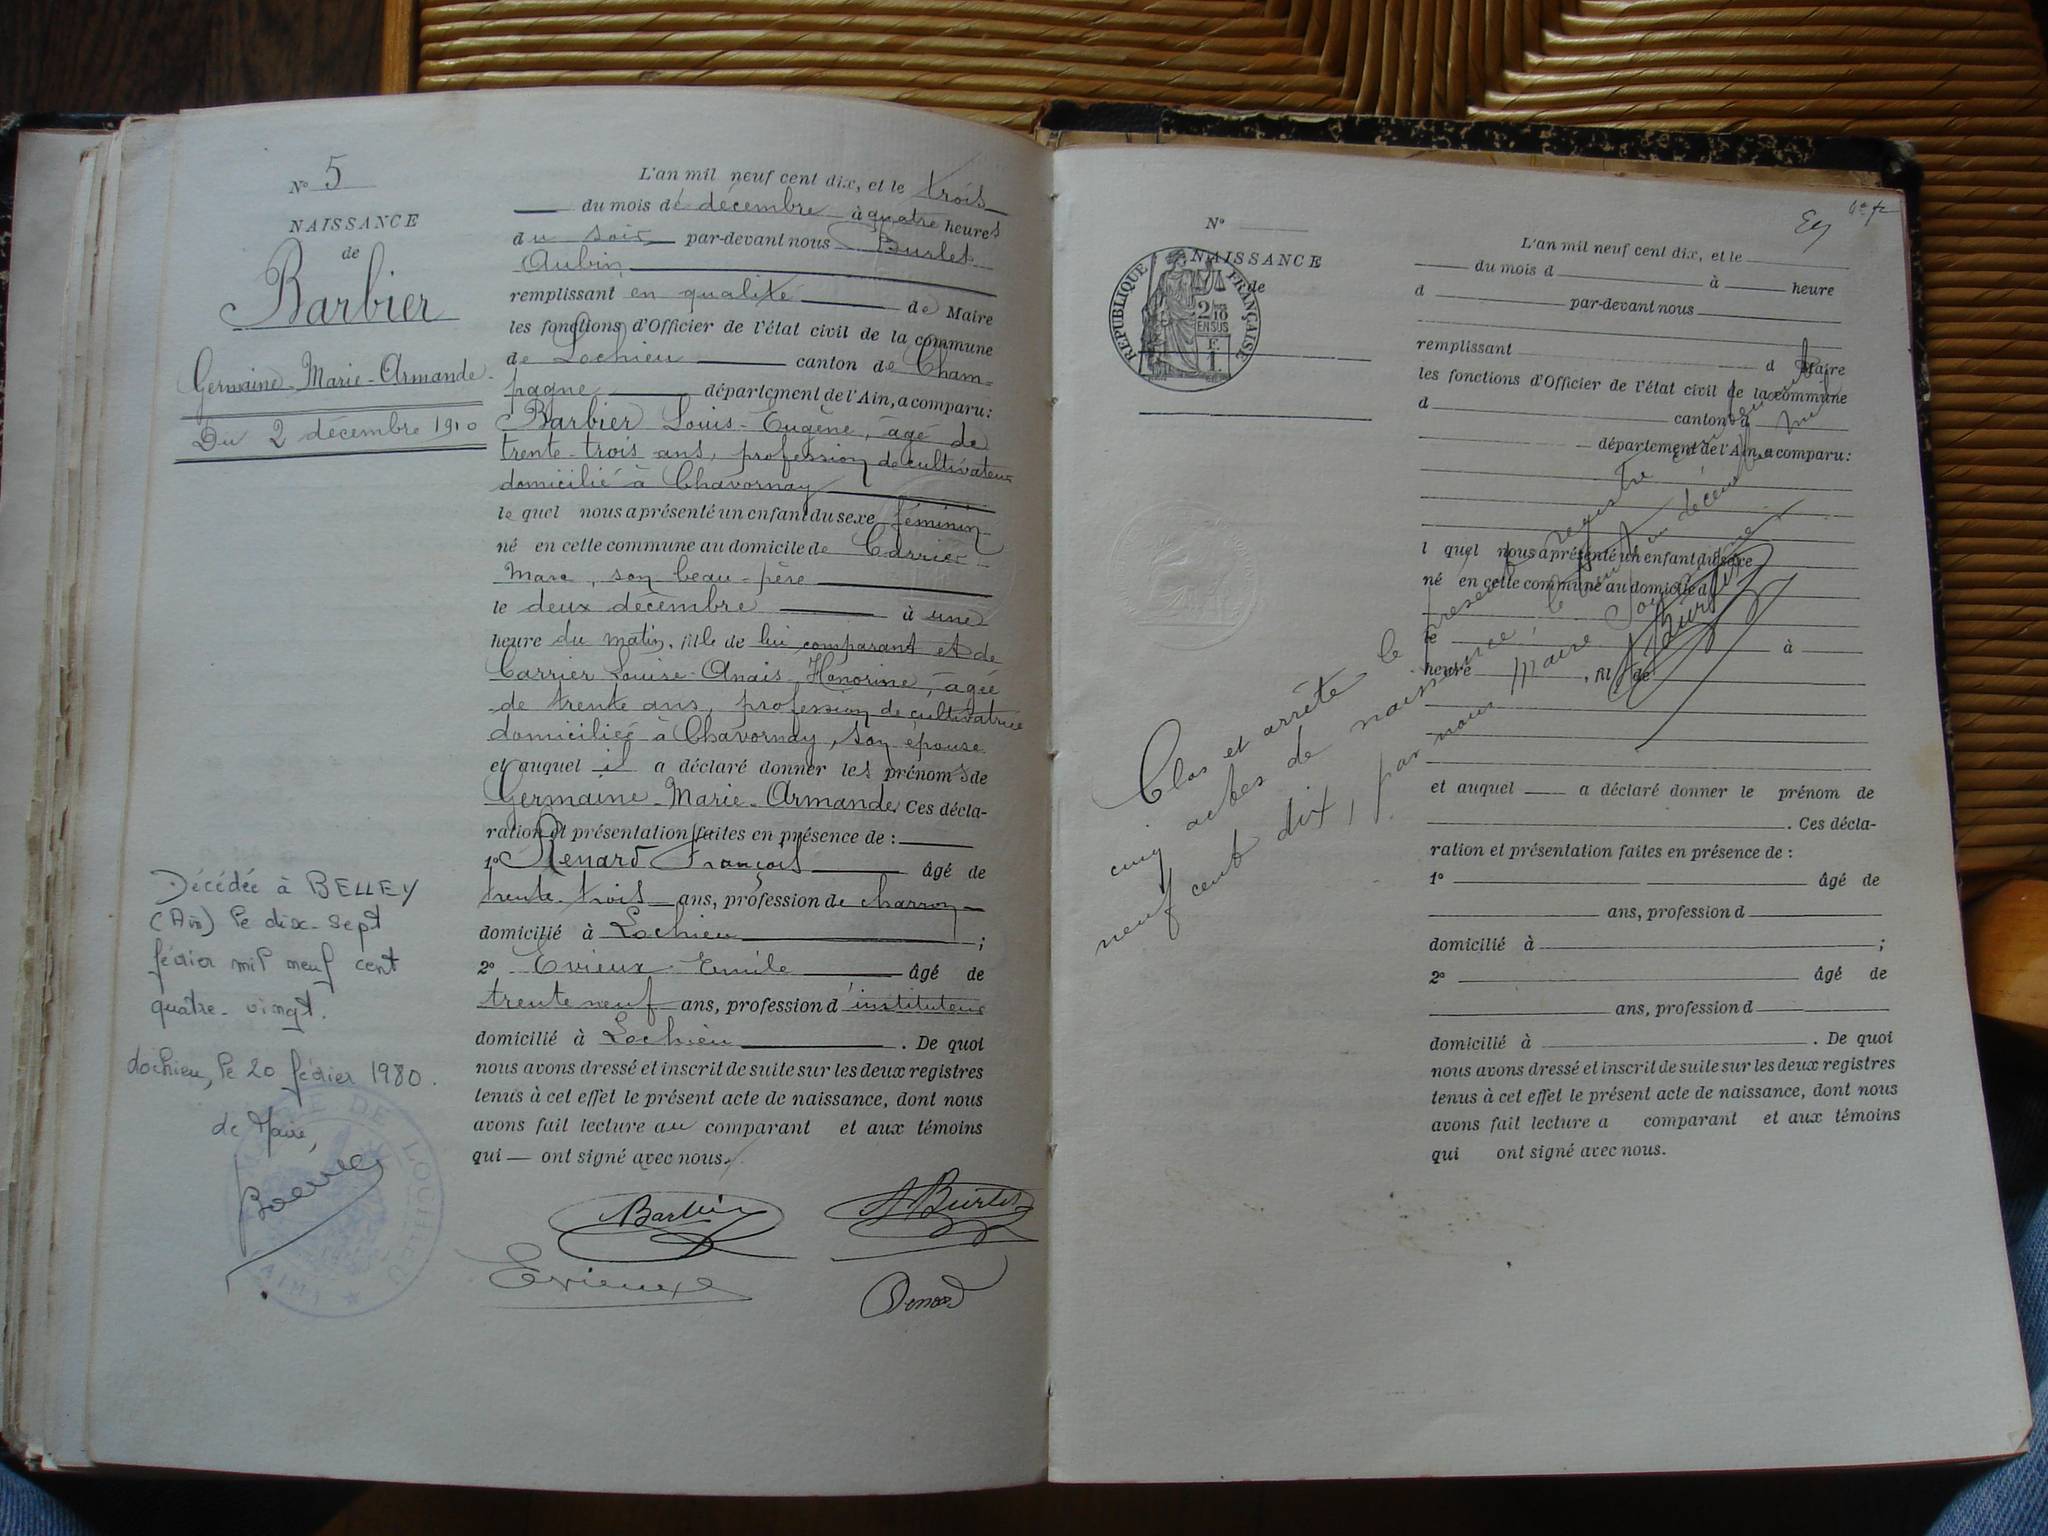 N° 5
NAISSANCE
de
Barbier
Germaine-Marie-Armande
Du 2 décembre 1910
L'an mil neuf cent dix, et le trois
du mois de décembre à quatre heures
du soir par-devant nous Burlet
Aubin
remplissant en qualité de Maire
les fonctions d'Officier de l'état civil de la commune
de Lochieu canton de Cham=
pagne, département de l'Ain, a comparu:
Barbier Louis-Eugène, âgé de
trente-trois ans, profession de cultivateur
domicilié à Chavornay
lequel nous a présenté un enfant du sexe féminin
né en cette commune au domicile de Carrier
Marc, son beau-père
le deux décembre à une
heure du matin, fille de lui comparant et de
Carrier Louise-Anaïs Honorine, âgée
de trente ans, profession de cultivatrice
domiciliée à Chavornay, son épouse
et auquel il a déclaré donner les prénoms de
Germaine-Marie-Armande. Ces décla-
ration et présentation faites en présence de :
1° Renard François âgé de
trente-trois ans, profession de charron
domicilié à Lochieu ;
2° Evieux Emile âgé de
trente neuf ans, profession d'instituteur
domicilié à Lochieu . De quoi
nous avons dressé et inscrit de suite sur les deux registres
tenus à cet effet le présent acte de naissance, dont nous
avons fait lecture au comparant et aux témoins
qui — ont signé avec nous.
Barbier
A Burlet
Evieux
Renard
Décédée à BELLEY
(Ain) le dix-sept
février mil neuf cent
quatre-vingt.
Lochieu, le 20 février 1980.
Le Maire,
MAIRIE DE LOCHIEU
(AIN)
N°
NAISSANCE
de
REPUBLIQUE FRANÇAISE
2/10
EN SUS
1
L'an mil neuf cent dix, et le
du mois d à heure
d par-devant nous
remplissant d Maire
les fonctions d'Officier de l'état civil de la commune
d canton d
département de l'Ain, a comparu:
l quel nous a présenté un enfant du sexe
né en cette commune au domicile d
le à
heure , fil de
et auquel a déclaré donner le prénom de
. Ces décla-
ration et présentation faites en présence de :
1° âgé de
ans, profession d
domicilié à ;
2° âgé de
ans, profession d
domicilié à . De quoi
nous avons dressé et inscrit de suite sur les deux registres
tenus à cet effet le présent acte de naissance, dont nous
avons fait lecture a comparant et aux témoins
qui ont signé avec nous.
Clos et arrêté le présent registre
cinq actes de naissance, le décembre mil
neuf cent dix, par nous Maire
A Burlet